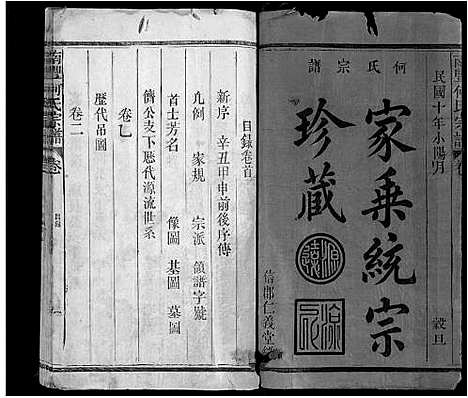 何氏宗譜
民國十年小陽月
穀旦
家乘統宗
珍藏
信郡仁義堂
目錄卷首
新序 辛丑甲申前後序傳
凡例 家規 宗派 領譜字號
首士芳名 像圖 基圖 墓圖
儕公支下歷代源流世系
卷
歷代吊圖
卷二
南豐何氏宗譜